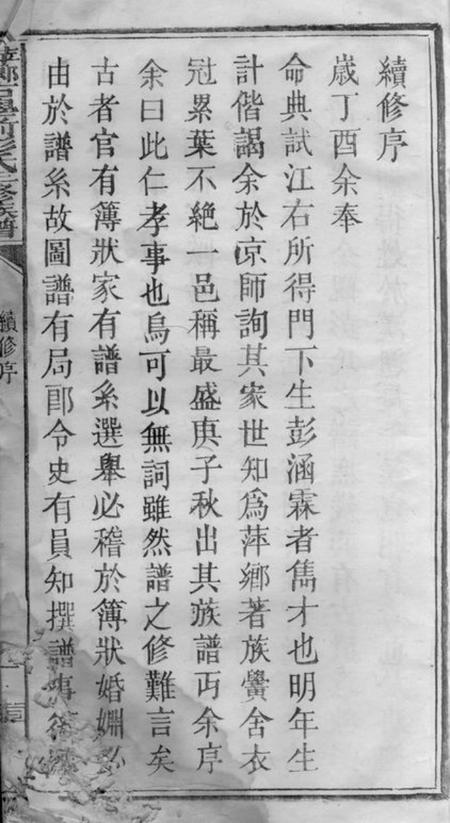 續修序
歲丁酉余奉
命典試江右所得門下生彭涵霖者雋才也明年生
計偕謁余於京師詢其家世知爲萍鄉著族黌舍衣
冠累葉不絕一邑稱最盛庚子秋出其族譜丐余序
余曰此仁孝事也烏可以無詞雖然譜之修難言矣
古者官有簿狀家有譜系選舉必稽於簿狀婚姻必
由於譜系故圖譜有局郎令史有員知撰譜事
彭氏 族譜
續修序